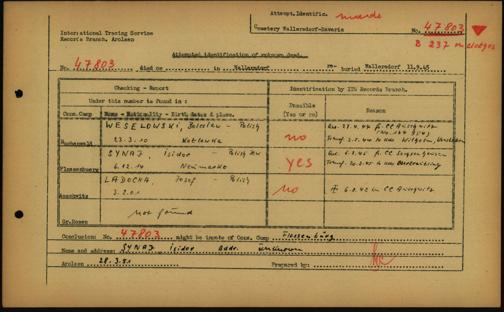 Attempt.Identific. made
Cemetery Wallersdorf-Bavaria No. 47803
B 237
International Tracing Service
Records Branch, Arolsen
Attempted identification of unknown dead.
No. 47803 died on in Wallersdorf re-buried Wallersdorf 11.9.45
Checking - Report
Identification by ITS Records Branch.
Under this number is found in:
Possible (Yes or no)
Reason
Conc.Camp Name - Nationality - Birth, date & place.
Buchenwald WESELOWSKI, Boleslav - Polish
23.3.10
no
Flossenbuerg SYNAJ, Isidor - Polish Jew
6.12.10 Neumarkt
yes
Auschwitz LADOCHA, Josef - Polish
3.2.01
no
6.8.42 in CC Auschwitz
Gr.Rosen not found
Conclusion: No. 47803 might be inmate of Conc. Camp Flossenbürg
Name and address: SYNAJ, Isidor Addr. Unknown
Arolsen 28.3.51 Prepared by: